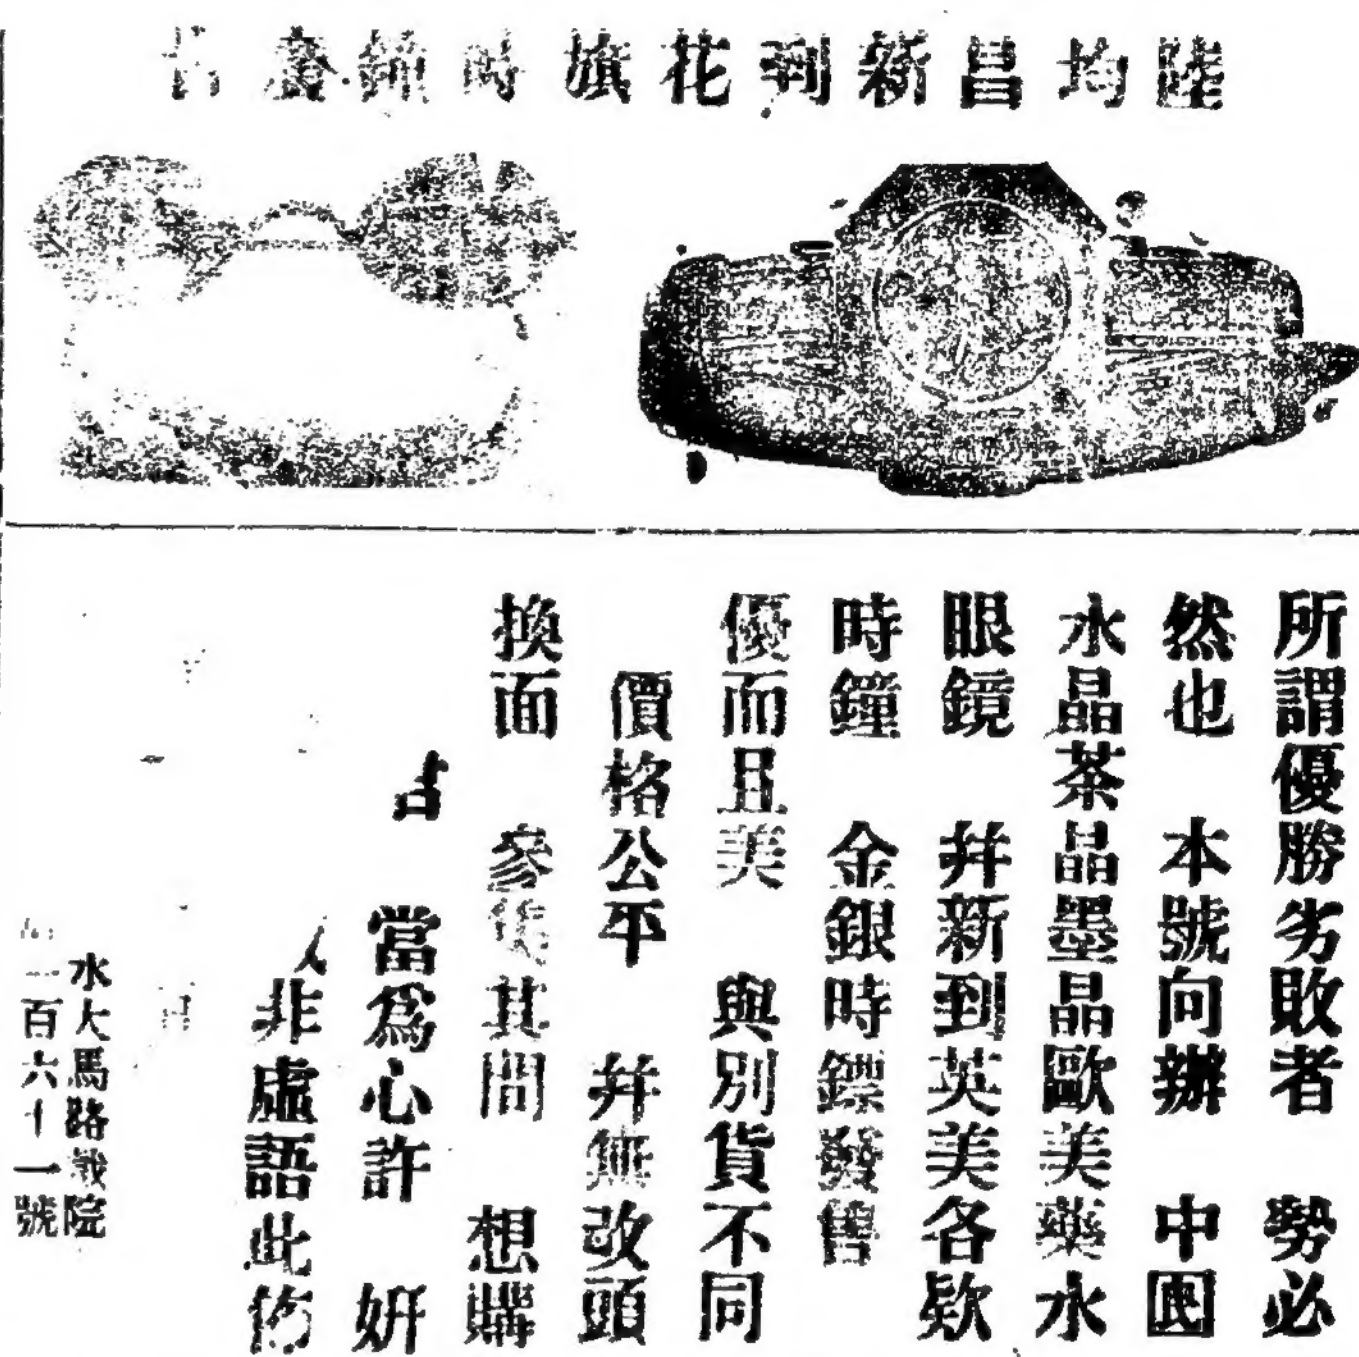 陸均昌新到花旗時鐘廣告
所謂優勝劣敗者 勢必
然也 本號向辦 中國
水晶茶晶墨晶歐美藥水
眼鏡 并新到英美各欵
時鐘 金銀時鏢發售
優而且美 與別貨不同
價格公平 并無改頭
換面 參雜其間 想購
當爲心許 妍
非虛語此佈
水大馬路戲院
百六十一號